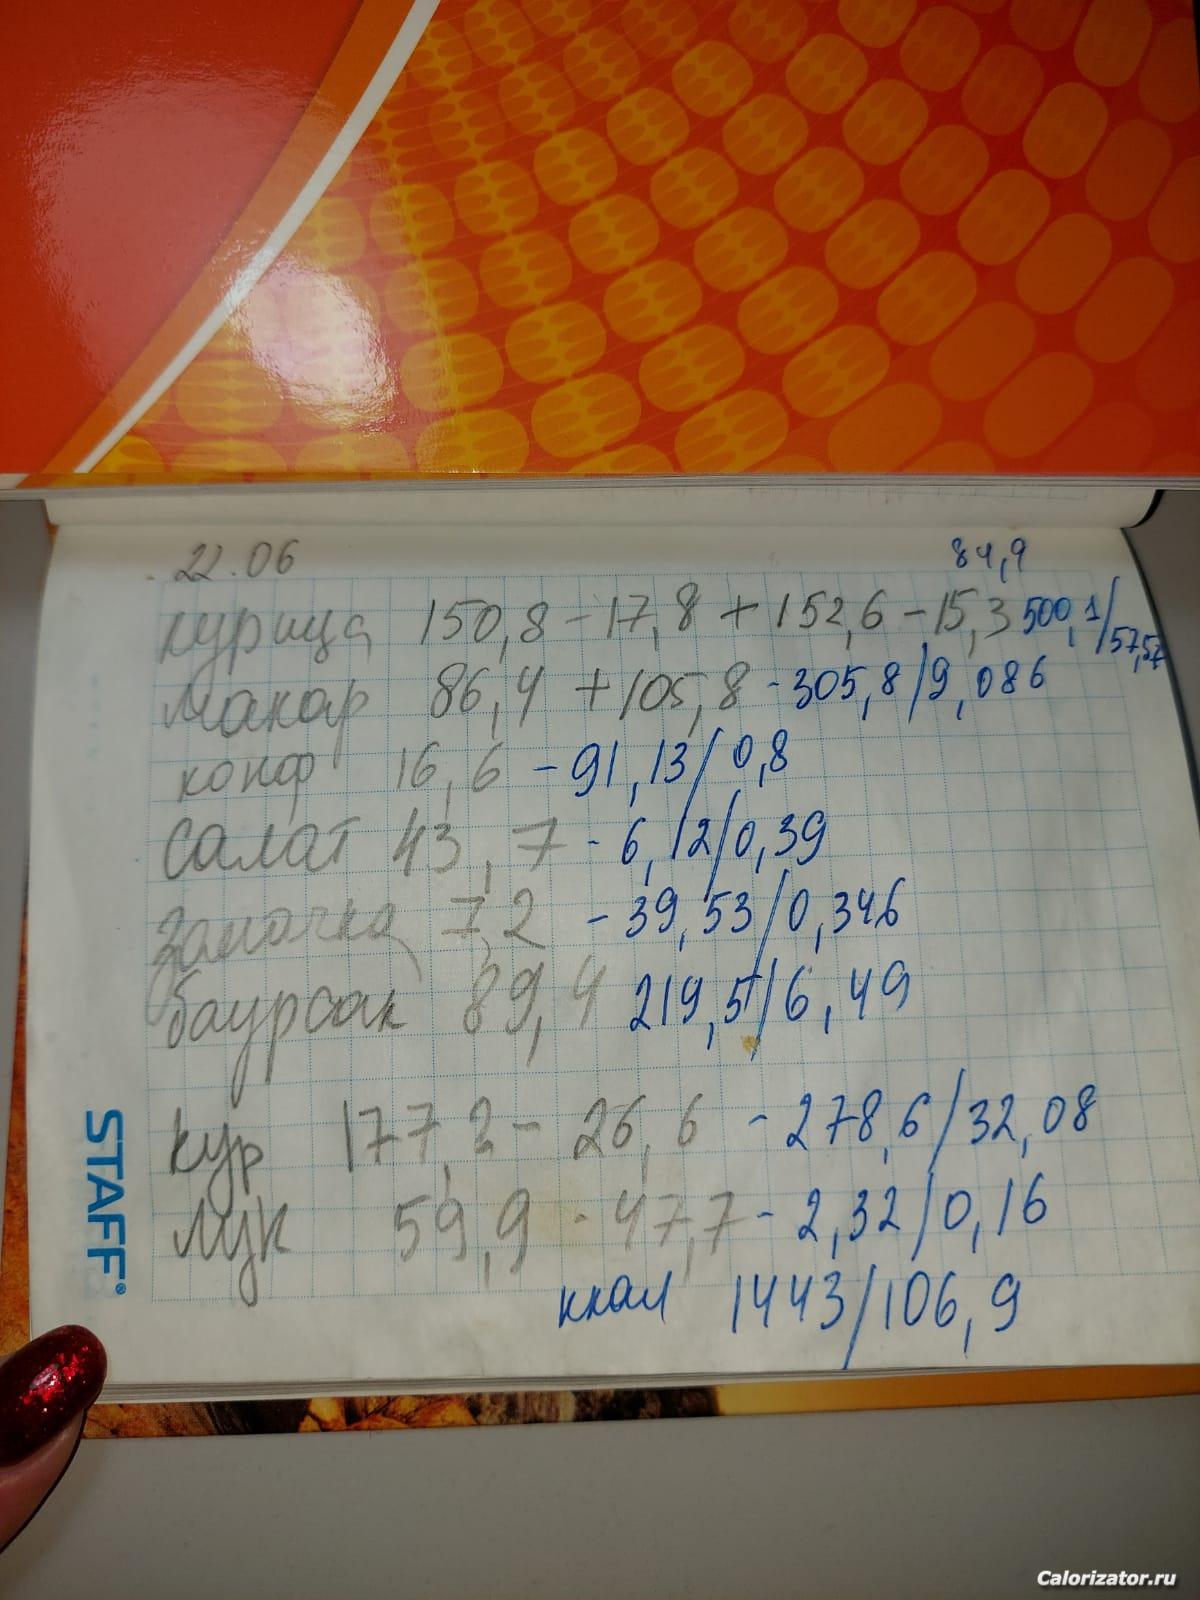 22.06
84,9
курица 150,8 - 17,8 + 152,6 - 15,3 500,1/57,57
макар 86,4 + 105,8 - 305,8/9,086
конф 16,6 - 91,13/0,8
салат 43,7 - 6,12/0,39
замочка 7,2 - 39,53/0,346
баурсак 89,4 219,5/6,49
кур 177,2 - 26,6 - 278,6/32,08
лук 59,9 - 47,7 - 2,32/0,16
ккал 1443/106,9
STAFF®
Calorizator.ru